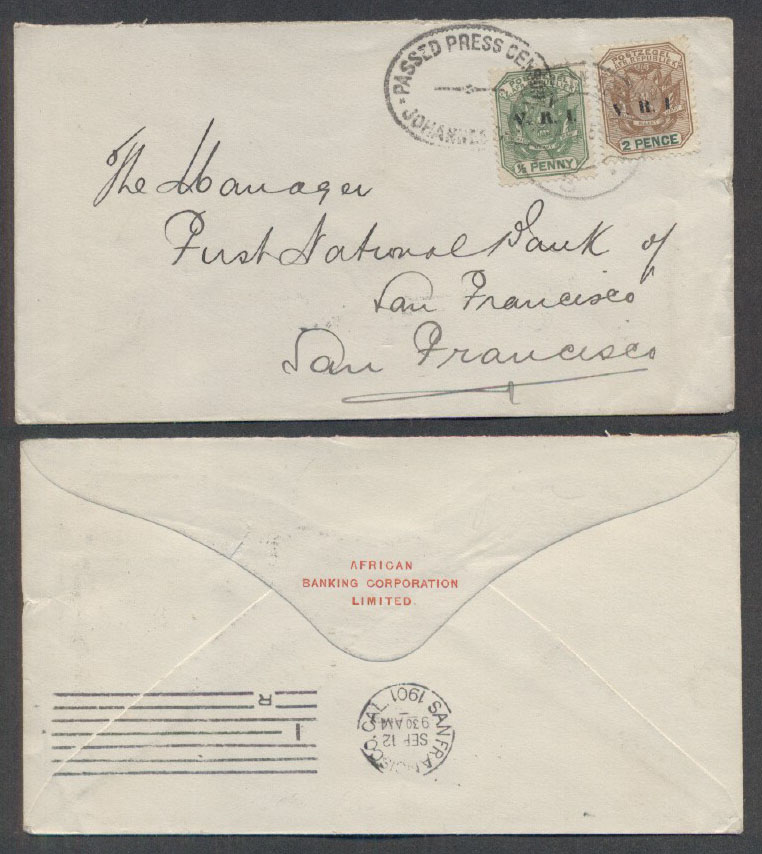 PASSED PRESS CEN
JOHANNES
POSTZEGEL
V. R. I.
½ PENNY
POSTZEGEL
V. R. I.
2 PENCE
The Manager
First National Bank of
San Francisco
San Francisco
AFRICAN
BANKING CORPORATION
LIMITED.
R
I
SAN FRANCISCO, CAL. 1901
SEP 12
930 AM